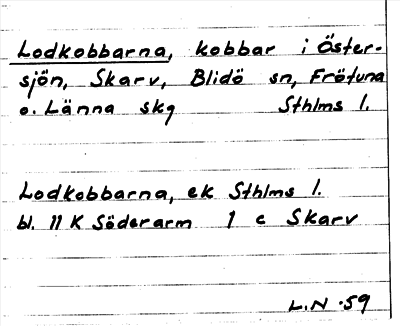 Lodkobbarna, kobbar i Öster-
sjön, Skarv, Blidö sn, Frötuna
o. Länna skg Sthlms l.
Lodkobbarna, ek Sthlms l.
bl. 11 K Söderarm 1 c Skarv
L.N. 59